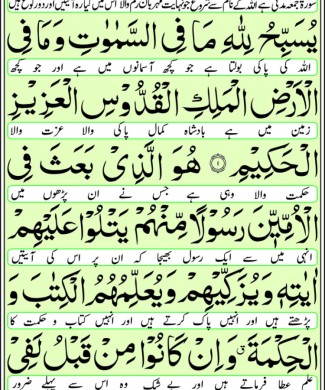 سورۃ جمعہ مدنی ہے اللہ کے نام سے شروع جو نہایت مہربان رحم والا اس میں گیارہ آیتیں اور دو رکوع ہیں
يُسَبِّحُ لِلّٰهِ مَا فِي السَّمٰوٰتِ وَمَا فِي
اللہ کی پاکی بولتا ہے جو کچھ آسمانوں میں ہے اور جو کچھ
الْاَرْضِ الْمَلِكِ الْقُدُّوْسِ الْعَزِيْزِ
زمین میں ہے بادشاہ کمال پاکی والا عزت والا
الْحَكِيْمِ ۝۱ هُوَ الَّذِيْ بَعَثَ فِي
حکمت والا وہی ہے جس نے ان پڑھوں میں
الْاُمِّيّٖنَ رَسُوْلًا مِّنْهُمْ يَتْلُوْا عَلَيْهِمْ
انہی میں سے ایک رسول بھیجا کہ ان پر اس کی آیتیں
اٰيٰتِهٖ وَيُزَكِّيْهِمْ وَيُعَلِّمُهُمُ الْكِتٰبَ وَ
پڑھتے ہیں اور انہیں پاک کرتے ہیں اور انہیں کتاب و حکمت کا
الْحِكْمَةَ ۗ وَاِنْ كَانُوْا مِنْ قَبْلُ لَفِيْ
علم عطا فرماتے ہیں اور بے شک وہ اس سے پہلے ضرور